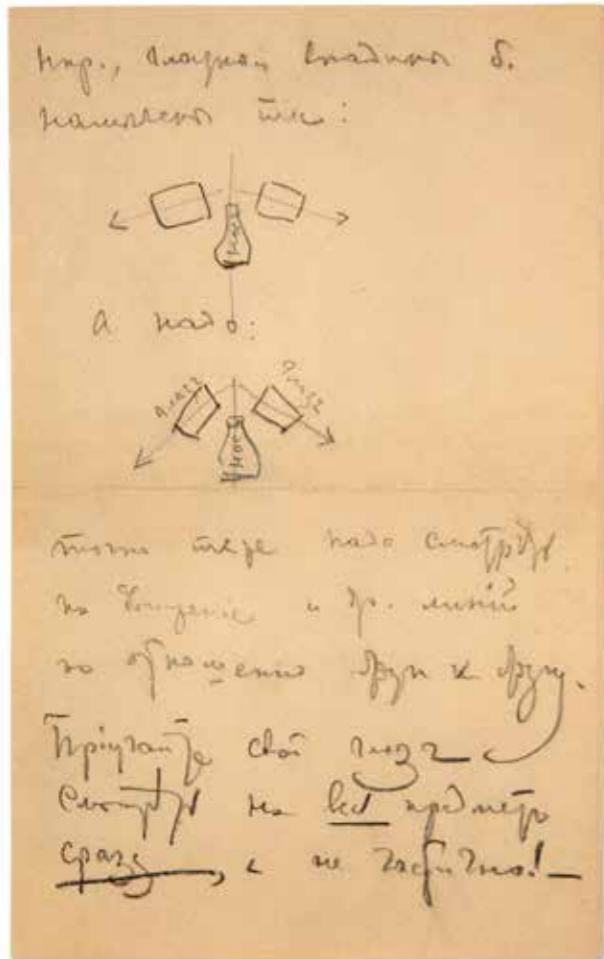 нпр., глазныя впадины б.
намѣчены так:
носъ
А надо:
глазъ
глазъ
носъ
точно также надо смотрѣть
на и др. линiй
по отношенiю друг к другу.
Прiучайте свой глазъ
Смотрѣть на весь предметъ
сразу, а не частично!—